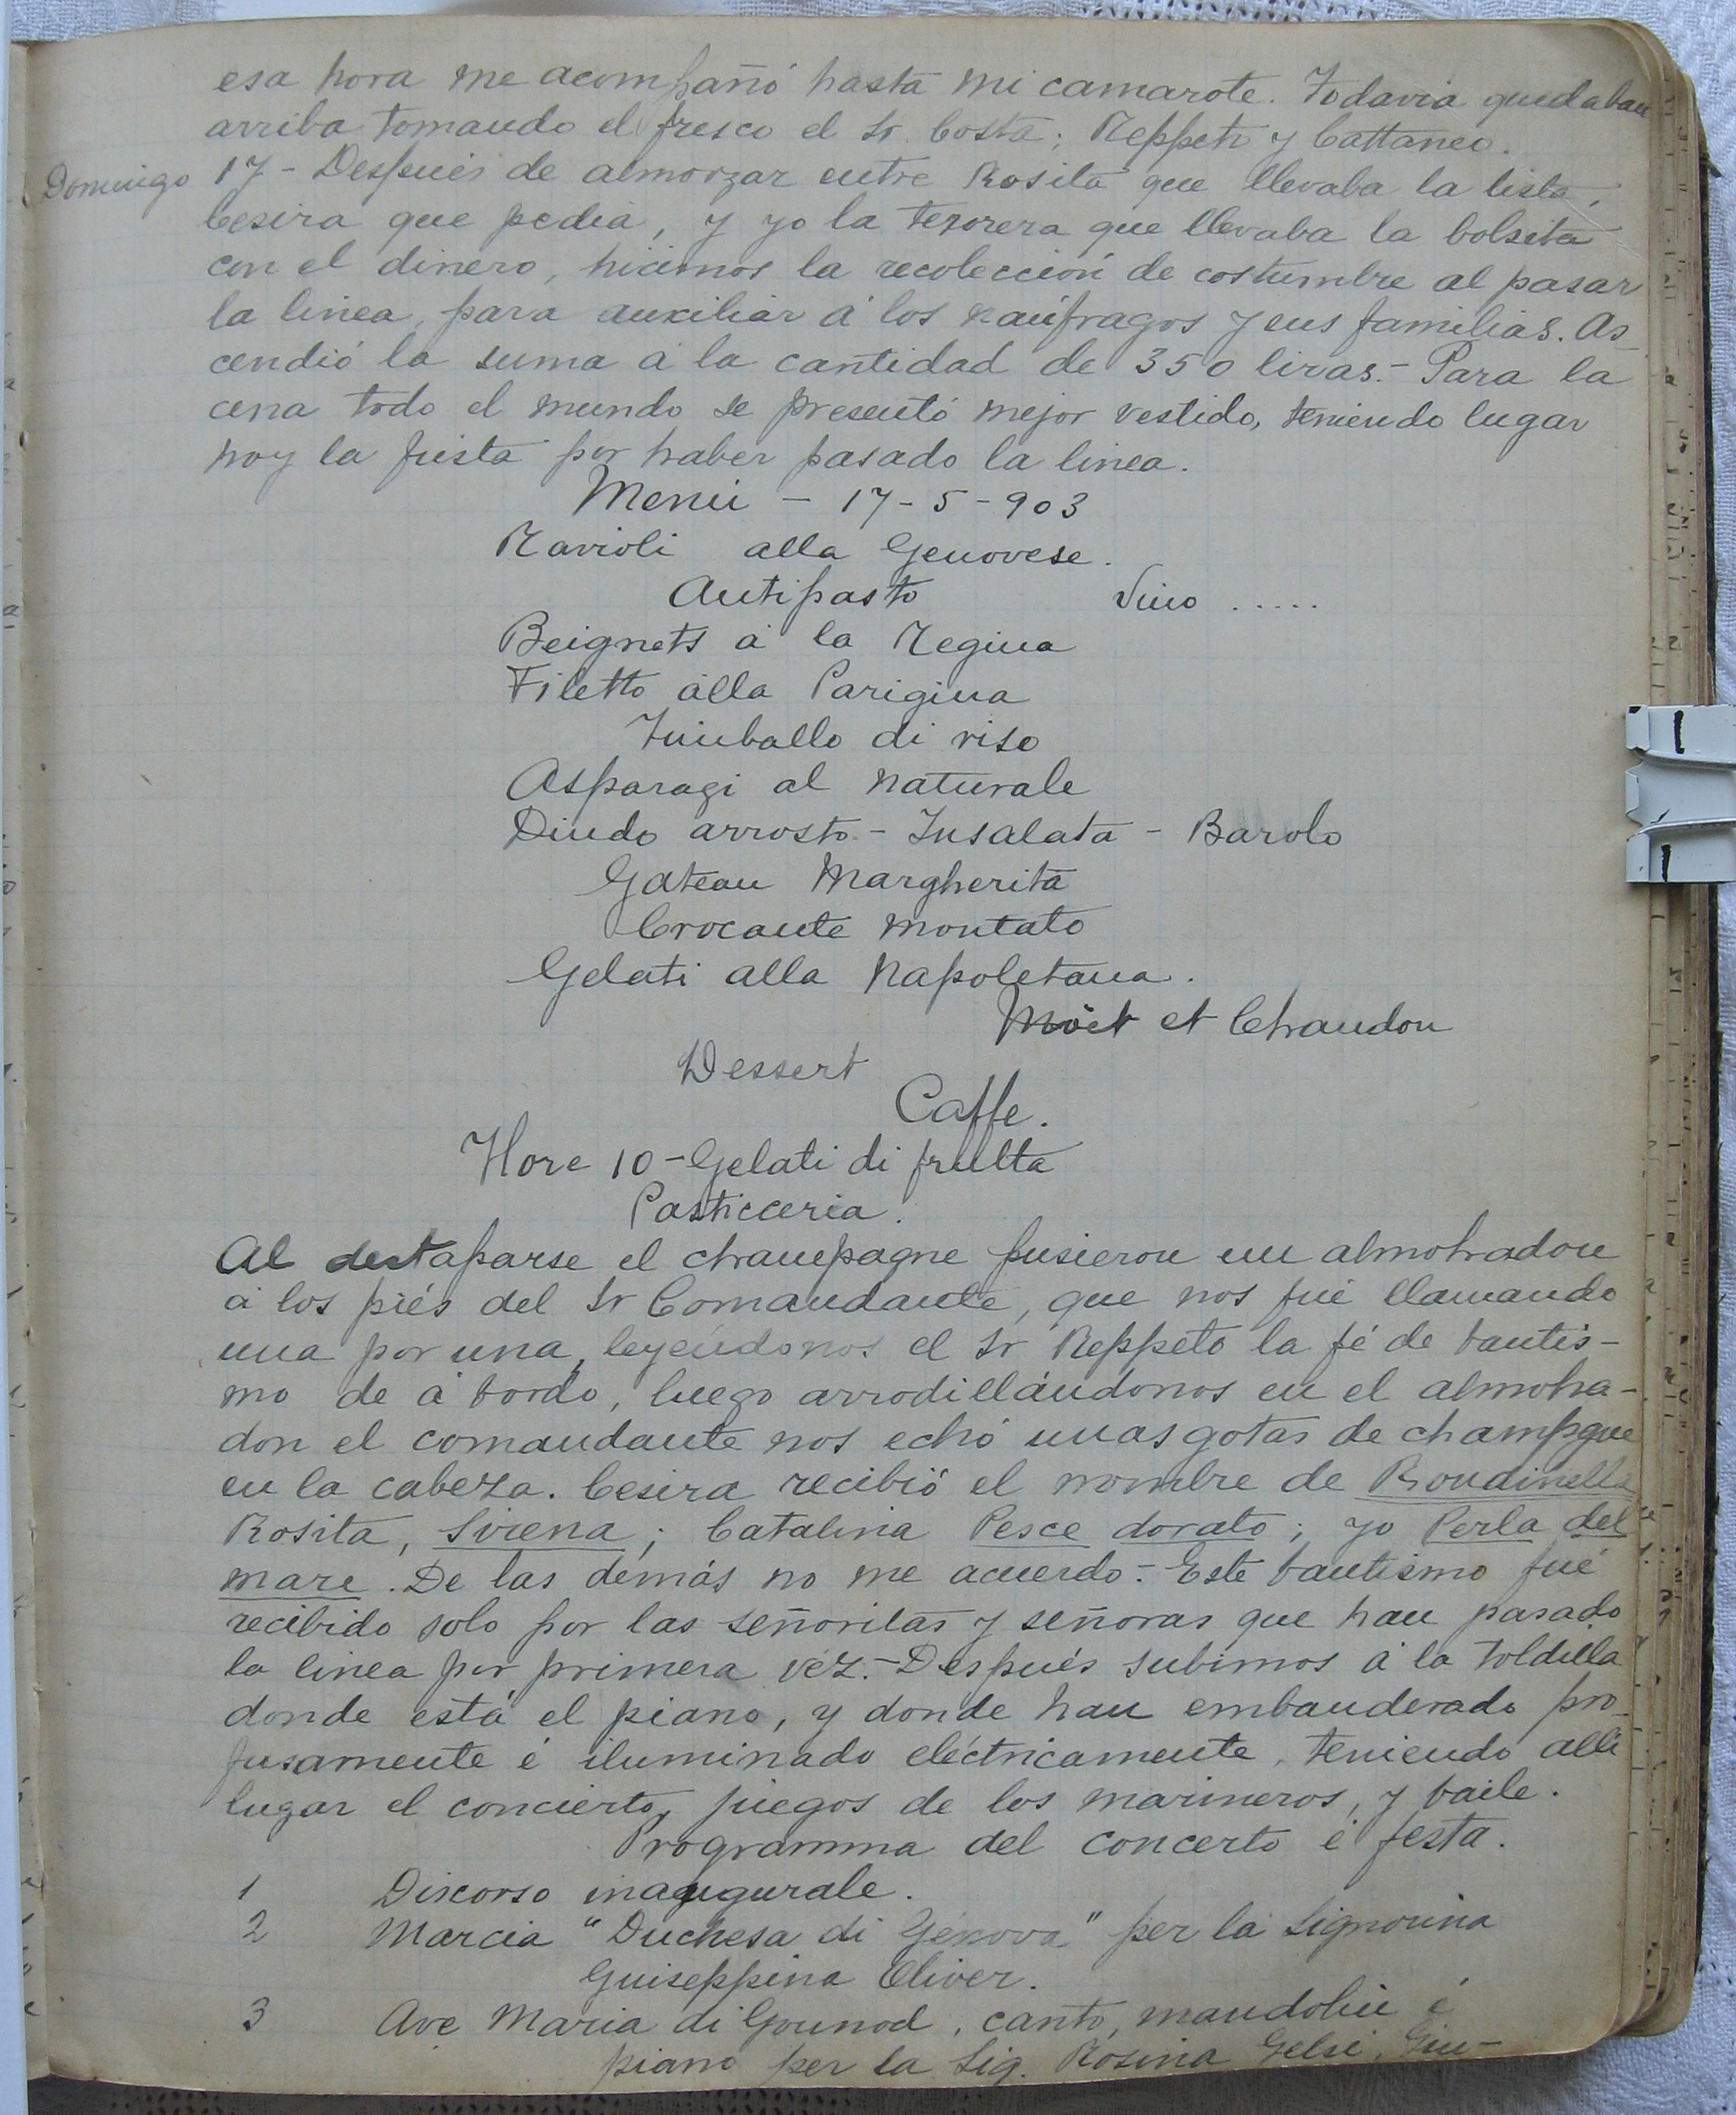 esa hora me acompañó hasta mi camarote. Todavia quedaban
arriba tomando el fresco el Sr. Costa; Reppeto y Cattaneo.
Domingo 17 - Después de almorzar entre Rosita que llevaba la lista,
Cesira que pedia, y yo la tezorera que llevaba la bolsita
con el dinero, hicimos la recolección de costumbre al pasar
la linea, para auxiliar á los naúfragos y sus familias. As_
cendió la suma á la cantidad de 350 liras.- Para la
cena todo el mundo se presentó mejor vestido, teniendo lugar
hoy la fiesta por haber pasado la linea.
Menú - 17-5-903
Ravioli alla Genovese.
Antipasto Vino .....
Beignets á la Regina
Filetto alla Parigina
Timballo di riso
Asparagi al naturale
Dindo arrosto - Insalata - Barolo
Gateau Margherita
Crocante montato
Gelati alla Napoletana.
Möet et Chandon
Dessert
Caffe.
Hore 10 - Gelati di frutta
Pasticceria.
Al destaparse el champagne pusieron un almohadon
á los piés del Sr Comandante, que nos fué llamando
una por una, leyéndonos el Sr Reppeto la fé de bautis-
mo de á bordo, luego arrodillándonos en el almoha-
don el comandante nos echó unas gotas de champgne
en la cabeza. Cesira recibió el nombre de Rondinella
Rosita, Sirena; Catalina Pesce dorato; yo Perla del
mare. De las demás no me acuerdo.- Este bautismo fué
recibido solo por las señoritas y señoras que han pasado
la linea por primera vez.- Después subimos á la toldilla
donde está el piano, y donde han embanderado pro_
fusamente é iluminado eléctricamente, teniendo alli
lugar el concierto, juegos de los marineros, y baile.
Programma del concerto é festa.
1 Discorso inaugurale.
2 Marcia "Duchesa di Génova" per la Signorina
Guiseppina Oliver.
3 Ave Maria di Gounod, canto, mandolin é
piano per la Sig. Rosina Gelsi, Giu-